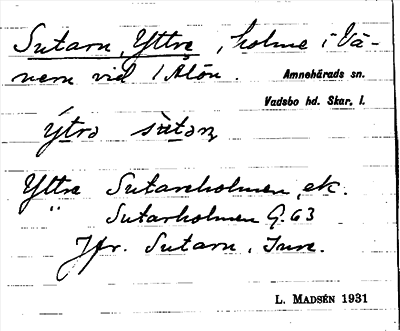 Sutarn, Yttre, holme i Vä-
nern vid Åön.
Amnehärads sn.
Vadsbo hd. Skar. l.
ýtrə
Yttre Sutareholmen, ek.
" Sutarholmen G. 63
Jfr. Sutarn, Inre.
L. MADSÉN 1931